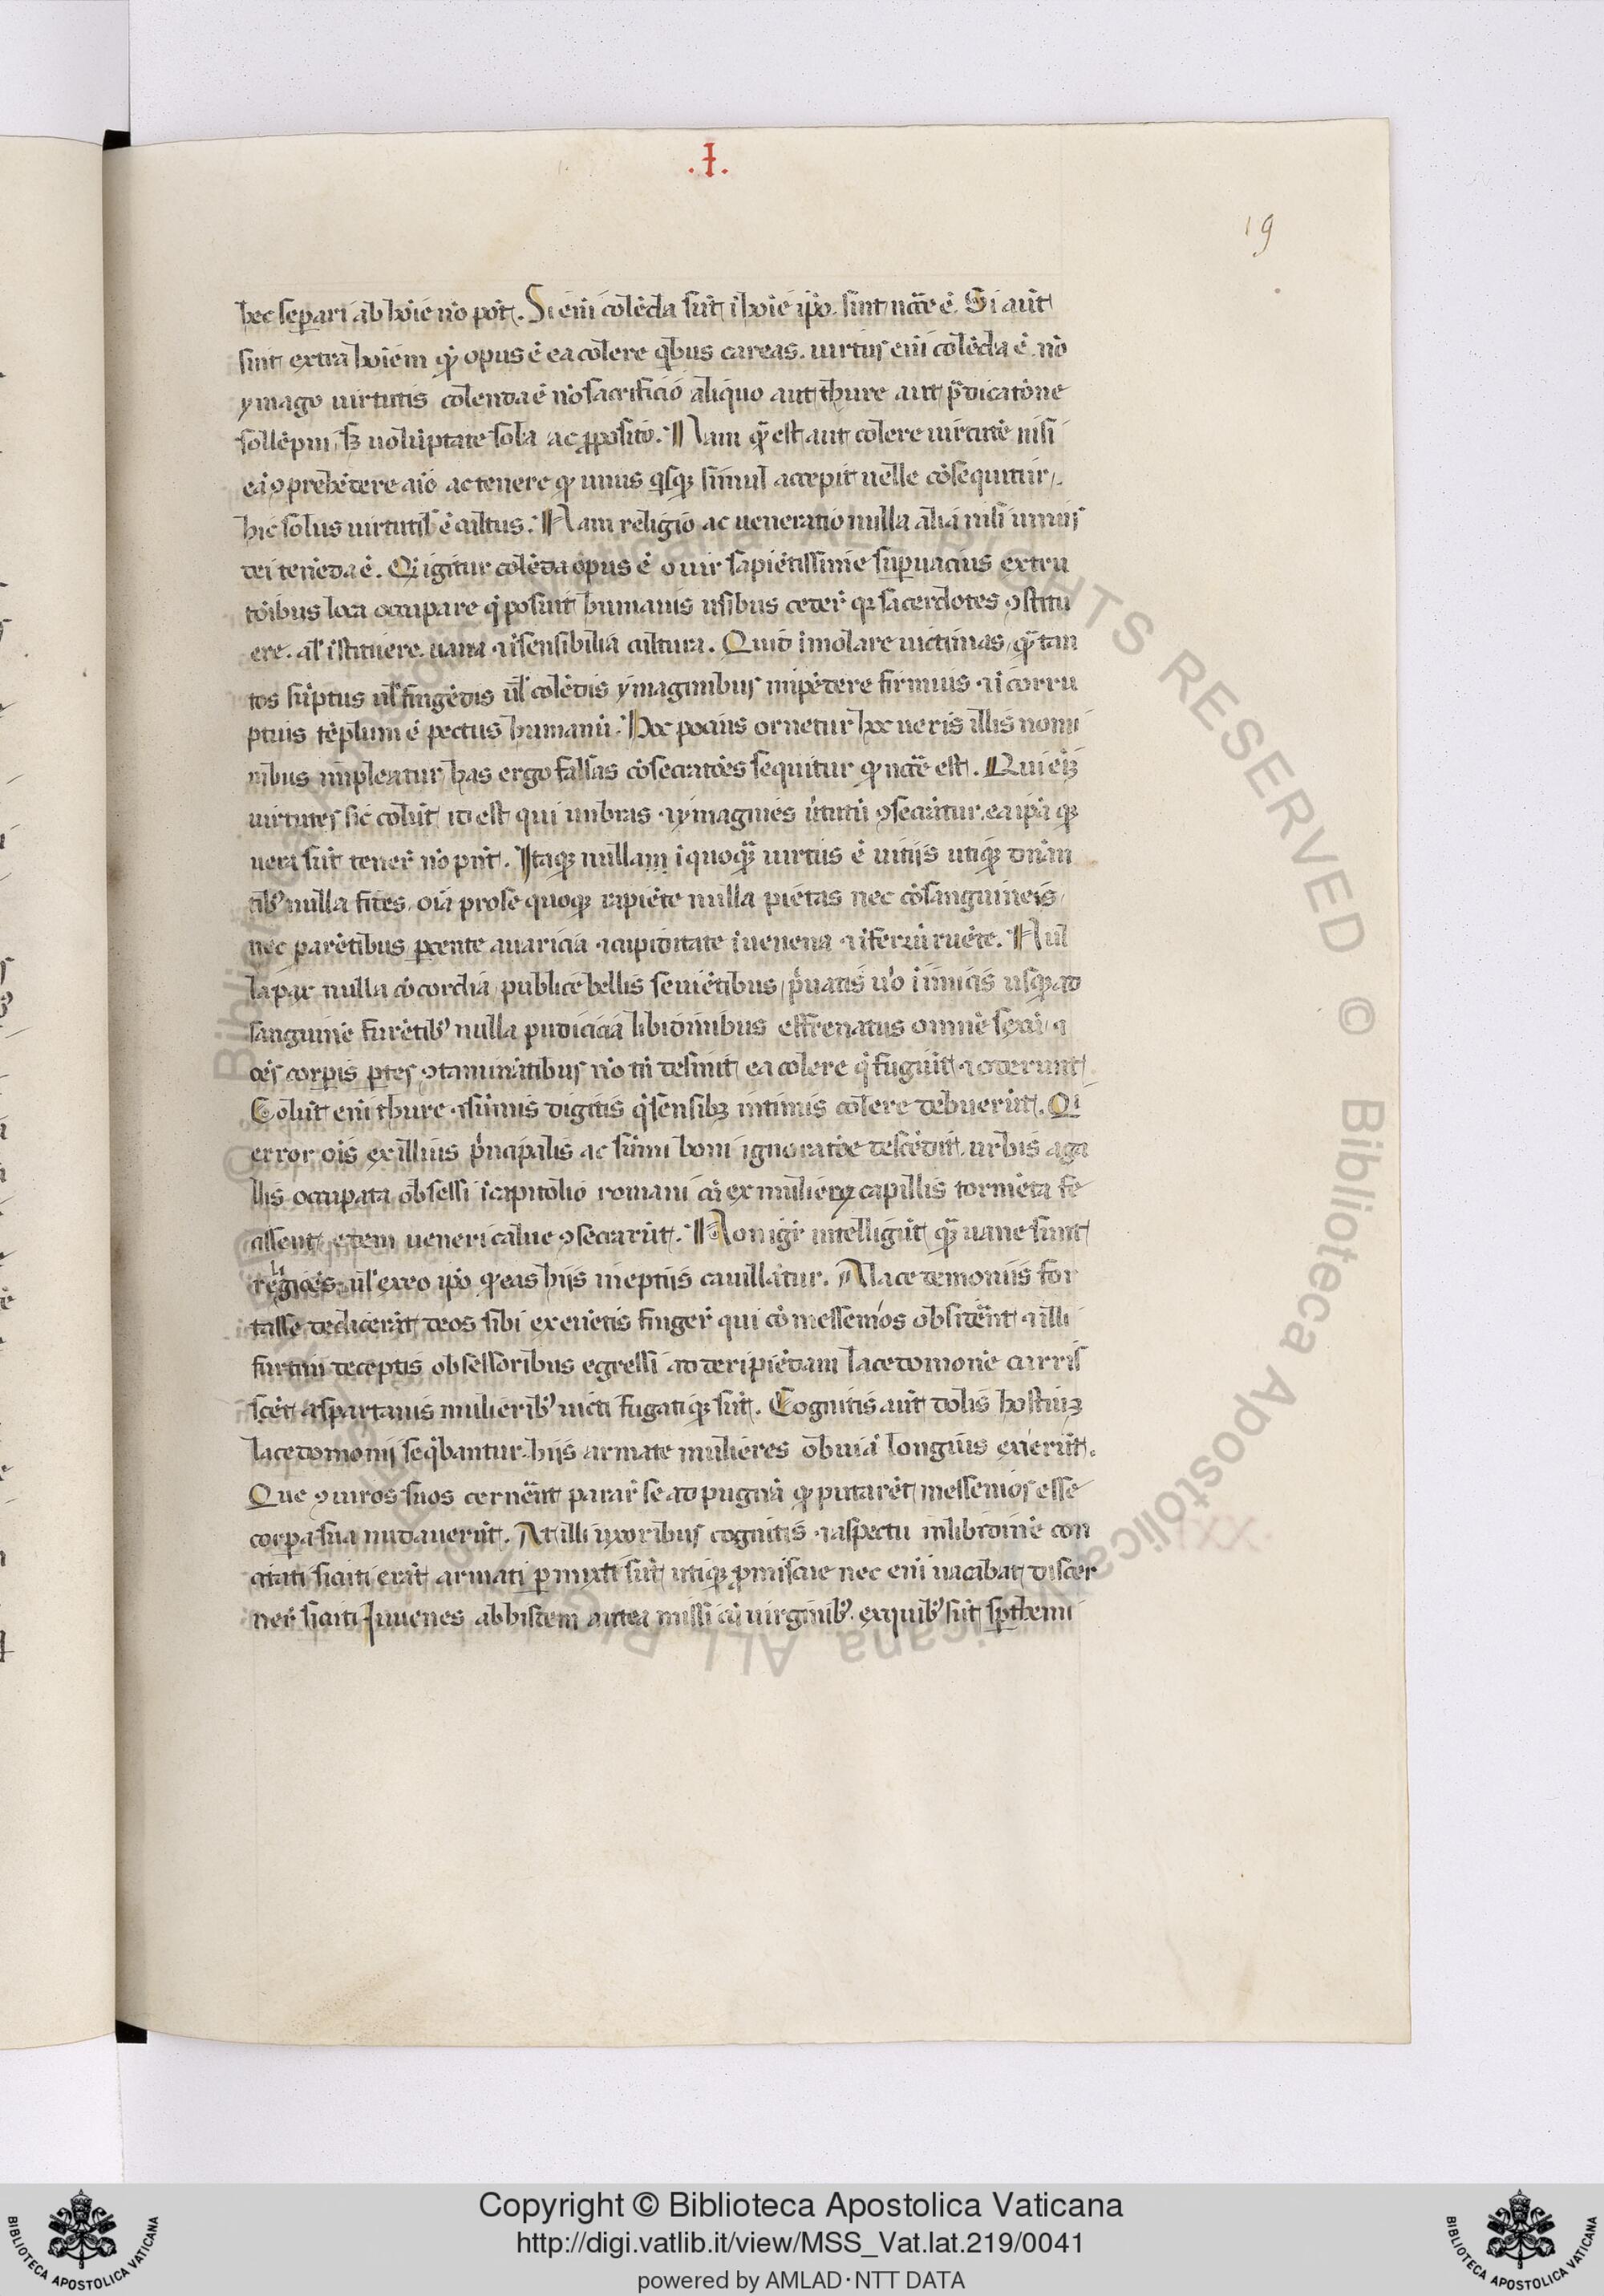 .I.
19
hec separi ab hoie nō pōt. Si eni colēda sūt i hoie ipo. sint ncc̄e ē. Si aut
sint extra hoiem qd opus ē ea colere qbus careas. uirtus eni colēda ē. nō
ymago uirtutis colenda ē nō sacrificio aliquo aut thure aut p̄dicatōne
sollēpni, sꝫ uolūptate sola ac ꝓposito. Nam qd est aut colere uirtutē nisi
eā ꝯprehēdere aīo ac tenere qd unus qsqꝫ simul accepit uelle cōsequitur.
hic solus uirtutis ē cultus. Nam religio ac ueneratio nulla alia nisi unius
dei tenēda ē. Qd igitur colēda opus ē o uir sapiētissime supuacuis extru
tōibus loca occupare q posunt humanis usibus ceder qd sacerdotes ꝯstitu
ere. al istituere. uana ⁊ isensibilia cultura. Quid imolare uictimas, qd tan
tos sūptus ul fingēdis ul colēdis ymaginibus impēdere firmius ⁊ icorru
ptuis tēplum ē pectus humanū. Hoc pocius ornetur hoc ueris illis nomi
nibus impleatur has ergo falsas cōsecratōes sequitur qd ncc̄e est. Qui eiꝫ
uirtutes sic colūt id est qui umbras ⁊ ymagines uirtutū ꝯsecātur. ea ipa qꝫ
uera sūt tener nō pnt. Itaqꝫ nullam i quoqꝫ uirtus ē uitijs utiqꝫ dn̄an
tibꝰ nulla fides, oia pro se quoqꝫ rapiēte nulla pietas nec cōsanguineis,
nec parētibus pcente auaricia ⁊ cupiditate i uenena ⁊ i ferrū ruēte. Nul
la pax nulla cōcordia, publice bellis seuiētibus, p̄uatis uo inimicis usqꝫ ad
sanguinē furētibꝰ nulla pudicicia libidinibus effrenatus omnē sexū, ⁊
oēs corpis ptes ꝯtaminātibus nō tn̄ desinūt ea colere q fugiūt ⁊ oderunt
Colūt eni thure ⁊ sūmis digitis q sensibꝫ intimis colere debuerūt. Qi
error ois ex illius p̄ncipalis ac sūmi boni ignoratōe descēdit. urbis a ga
llis occupata obsessi i capitolio romani cū ex muliērꝫ capillis tormēta fe
cissent, edem ueneri calue ꝯsecrarūt. Non igr intelligūt qd uane sunt
religiōes, ul ex eo ipo qd eas hijs ineptijs cauillātur. A lacedemoniis for
tasse dedicerāt deos sibi ex euētis finger qui cū messenios obsidēnt ⁊ illi
furtim deceptis obsessoribus egressi ad deripiēdam lacedomonē curris
scēt a spartanis mulieribꝰ uicti fugatiqꝫ sūt. Cognitis aut dolis hostiuꝫ
lacedomonij seqbantur. hijs armate mulieres obuiā longius exierūt.
Que ꝯ uiros suos cernēnt parar se ad pugnā qd putarēt messenios esse
corpa sua nudauerūt. At illi uxoribus cognitis ⁊ aspectu in libidinē con
citati sicuti erāt armati pmixti sūt utiqꝫ pmiscue nec eni uacabat discer
ner sicuti Iuuenes ab hisdem antea missi cū uirginibꝰ. ex quibꝰ sūt sptheni
Copyright © Biblioteca Apostolica Vaticana
http://digi.vatlib.it/view/MSS_Vat.lat.219/0041
powered by AMLAD·NTT DATA